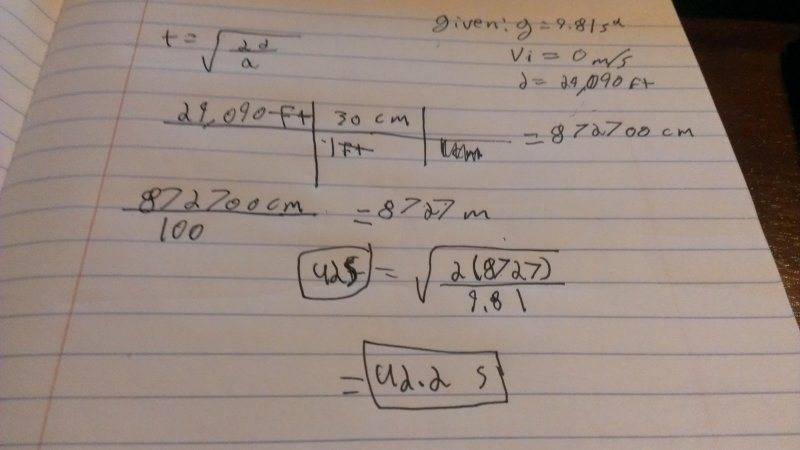 given: g = 9.81 s²
t = √(2d/a)
Vi = 0 m/s
d = 29,090 ft
29,090 ft | 30 cm
1 ft
= 872700 cm
872700 cm / 100 = 8727 m
42s = √(2(8727)/9.81)
= 42.2 s